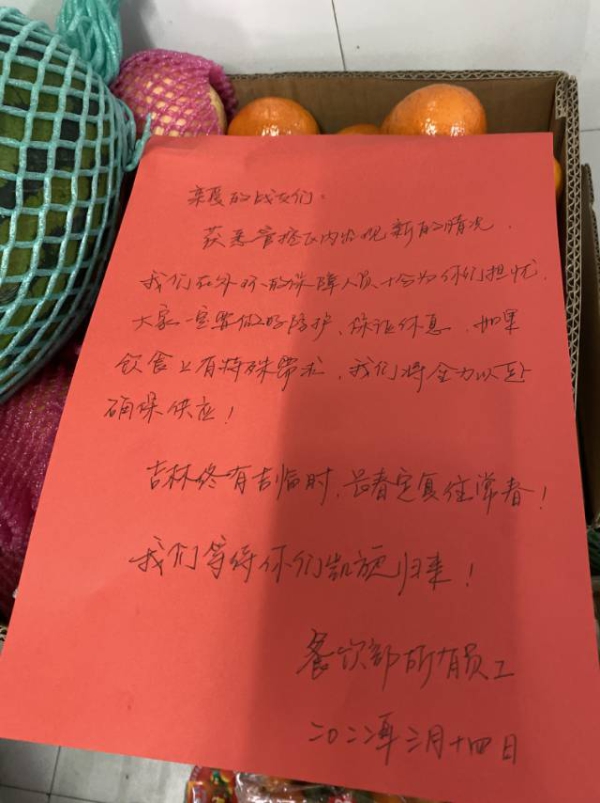 亲爱的战友们：
获悉管控区内出现新的情况，
我们在外环的保障人员十分为你们担忧，
大家一定要做好防护、保证休息，如果
饮食上有特殊需求，我们将全力以赴
确保供应！
吉林终有吉临时，长春定复往常春！
我们等待你们凯旋归来！
餐饮部所有员工
二〇二二年三月十四日